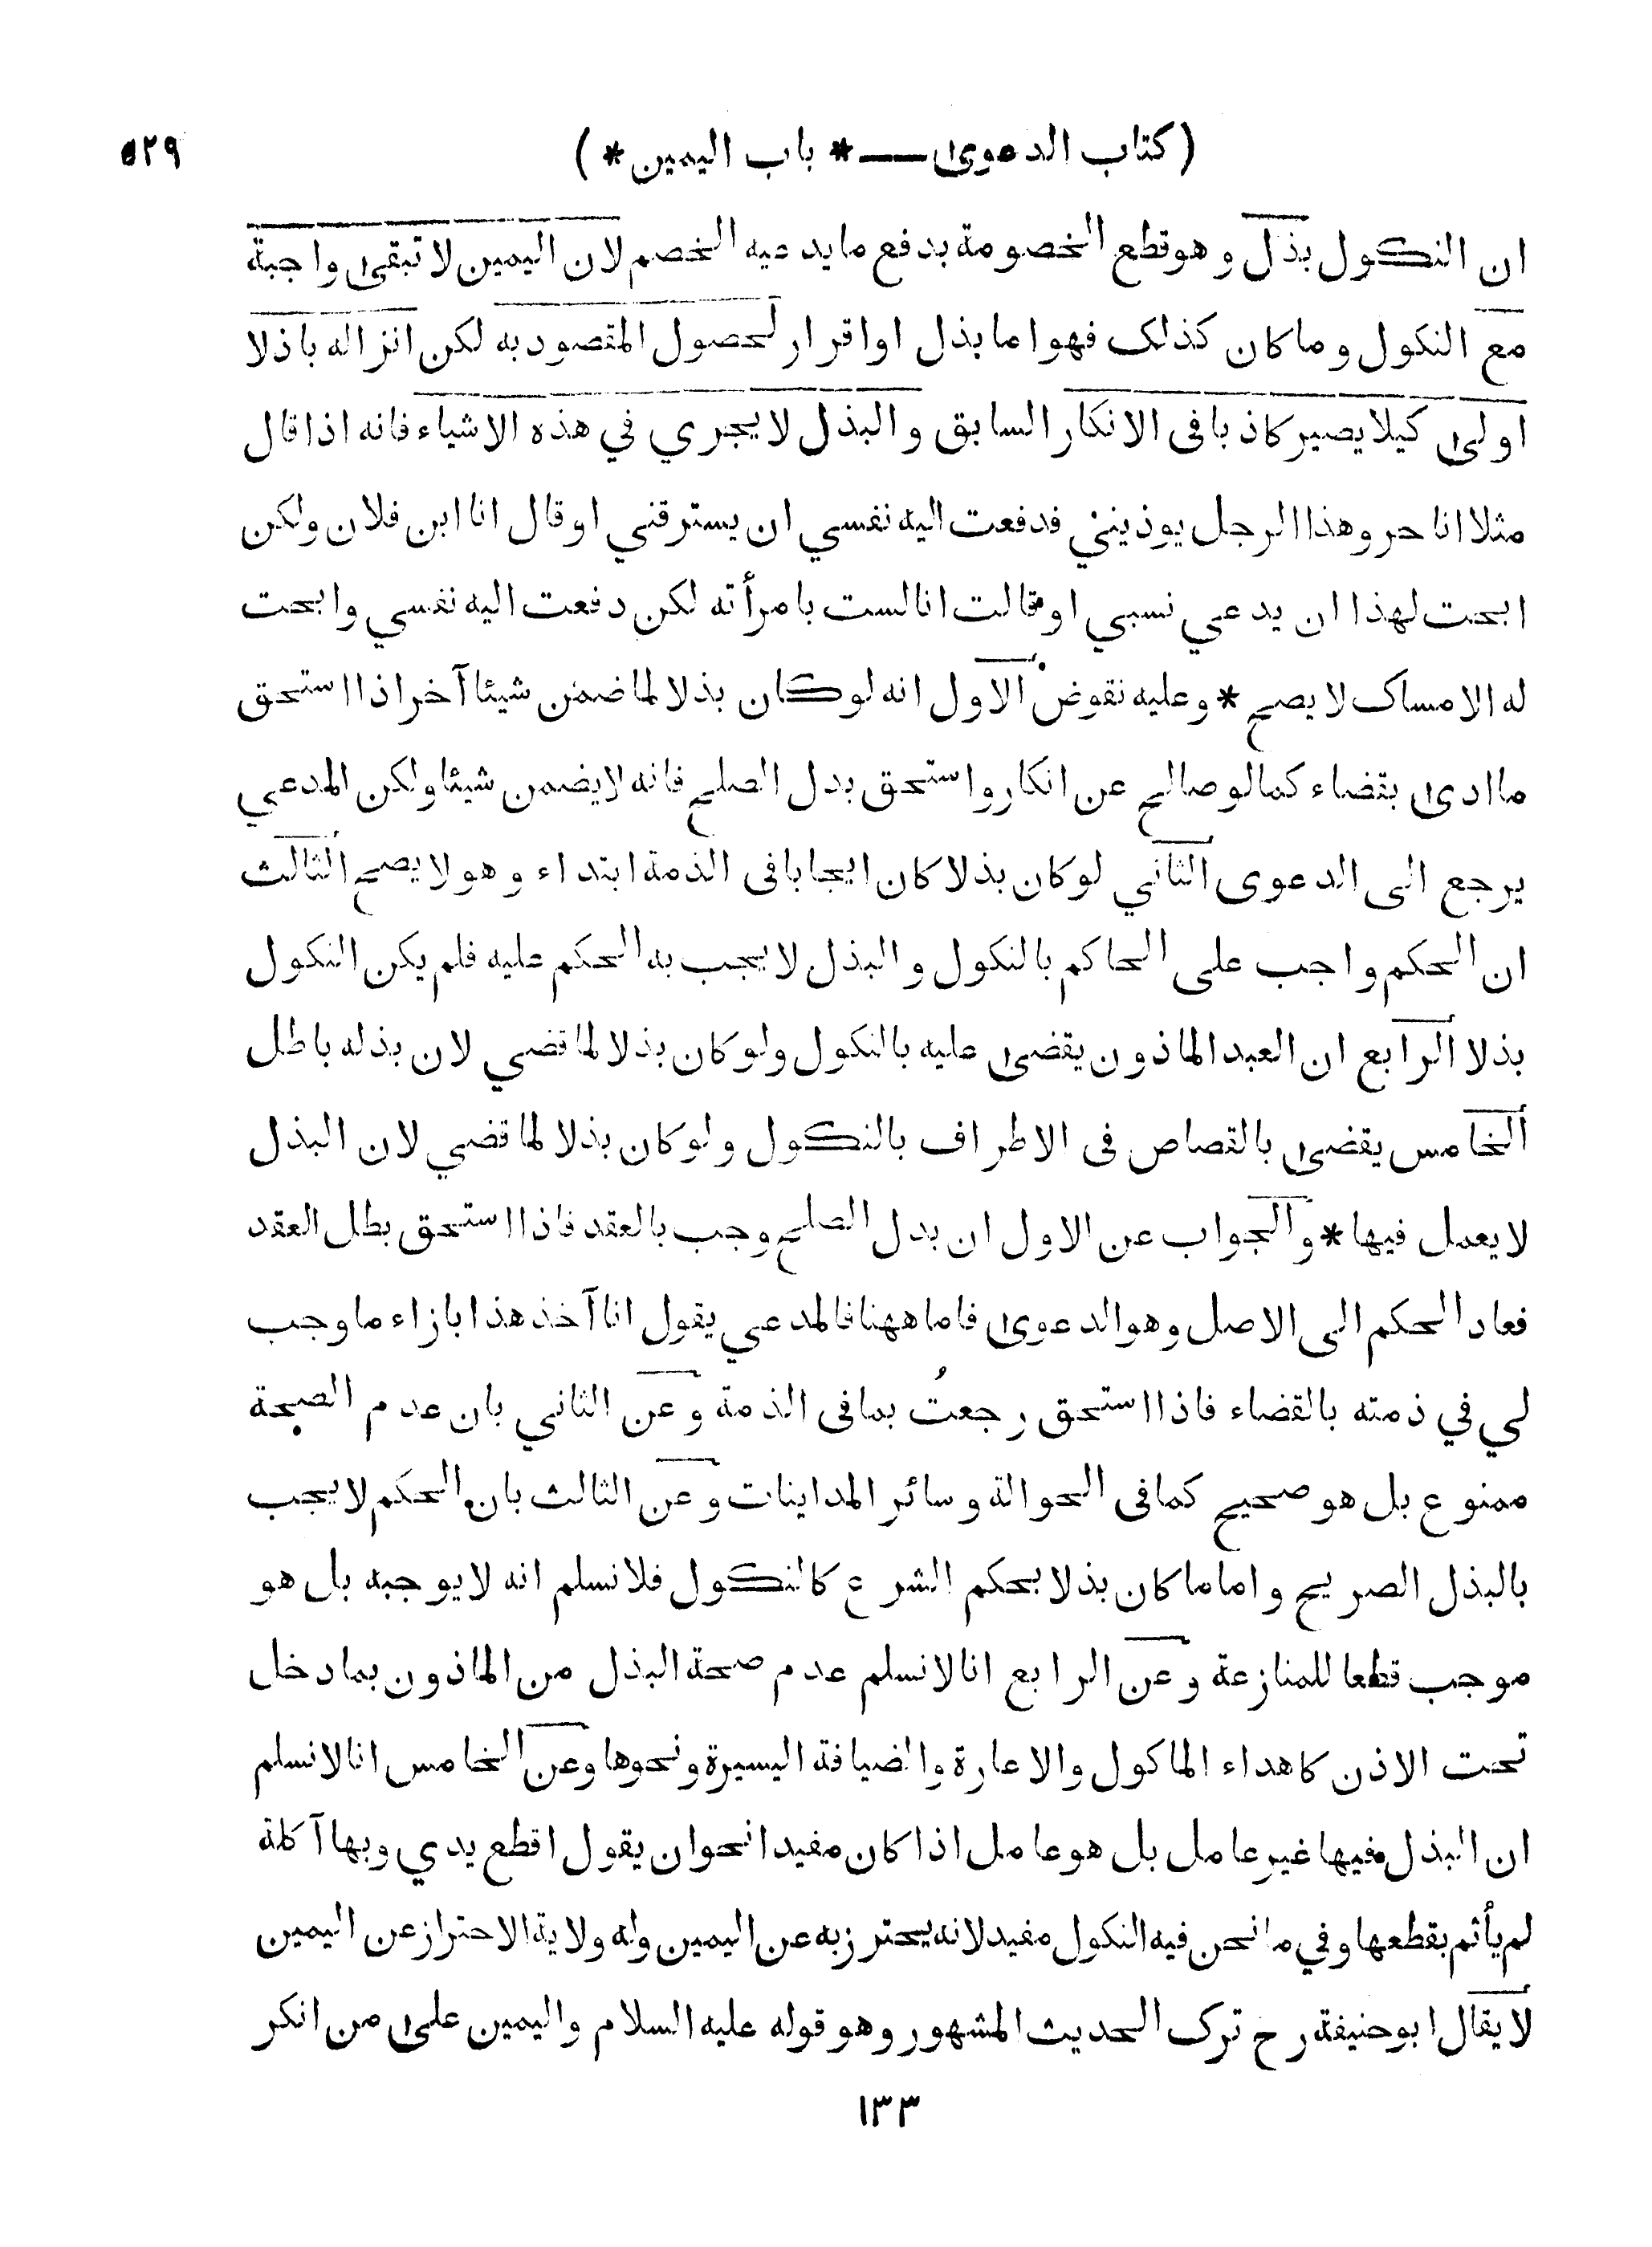 ( كتاب الدعوى — * باب اليمين * ) ٥٢٩
ان النكول بذل وهو قطع الخصومة بدفع ما يدعيه الخصم لان اليمين لا تبقى واجبة
مع النكول وما كان كذلك فهو اما بذل او اقرار لحصول المقصود به لكن انزاله باذلا
اولى كيلا يصير كاذبا فى الانكار السابق والبذل لا يجري في هذه الاشياء فانه اذا قال
مثلا انا حر وهذا الرجل يوذيني فدفعت اليه نفسي ان يسترقني او قال انا ابن فلان ولكن
ابحت لهذا ان يدعي نسبي او قالت انا لست بامرأته لكن دفعت اليه نفسي وابحت
له الامساك لا يصح * وعليه نقوض الاول انه لو كان بذلا لما ضمن شيئا آخر اذا استحق
ما ادى بقضاء كما لو صالح عن انكار واستحق بدل الصلح فانه لا يضمن شيئا ولكن المدعي
يرجع الى الدعوى الثاني لو كان بذلا كان ايجابا فى الذمة ابتداء وهو لا يصح الثالث
ان الحكم واجب على الحاكم بالنكول والبذل لا يجب به الحكم عليه فلم يكن النكول
بذلا الرابع ان العبد الماذون يقضى عليه بالنكول ولو كان بذلا لما قضي لان بذله باطل
الخامس يقضى بالقصاص فى الاطراف بالنكول ولو كان بذلا لما قضي لان البذل
لا يعمل فيها * والجواب عن الاول ان بدل الصلح وجب بالعقد فاذا استحق بطل العقد
فعاد الحكم الى الاصل وهو الدعوى فاما ههنا فالمدعي يقول انا آخذ هذا بازاء ما وجب
لي في ذمته بالقضاء فاذا استحق رجعتُ بما فى الذمة وعن الثاني بان عدم الصحة
ممنوع بل هو صحيح كما فى الحوالة وسائر المداينات وعن الثالث بان الحكم لا يجب
بالبذل الصريح واما ما كان بذلا بحكم الشرع كالنكول فلا نسلم انه لا يوجبه بل هو
موجب قطعا للمنازعة وعن الرابع انا لا نسلم عدم صحة البذل من الماذون بما دخل
تحت الاذن كاهداء الماكول والاعارة والضيافة اليسيرة ونحوها وعن الخامس انا لا نسلم
ان البذل فيها غير عامل بل هو عامل اذا كان مفيدا نحو ان يقول اقطع يدي وبها آكلة
لم يأثم بقطعها وفي ما نحن فيه النكول مفيد لانه يحترز به عن اليمين وله ولاية الاحتراز عن اليمين
لا يقال ابو حنيفة رح ترك الحديث المشهور وهو قوله عليه السلام واليمين على من انكر
١٣٣